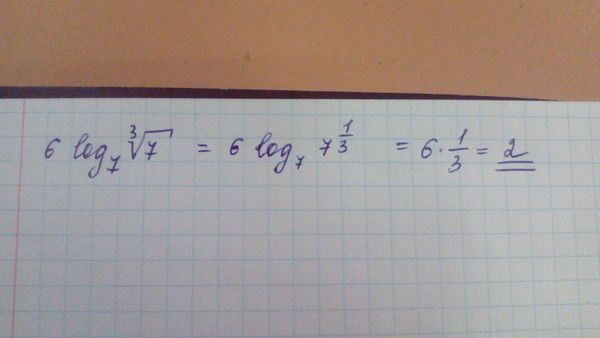 6 log₇ ∛7 = 6 log₇ 7^(1/3) = 6 · 1/3 = 2